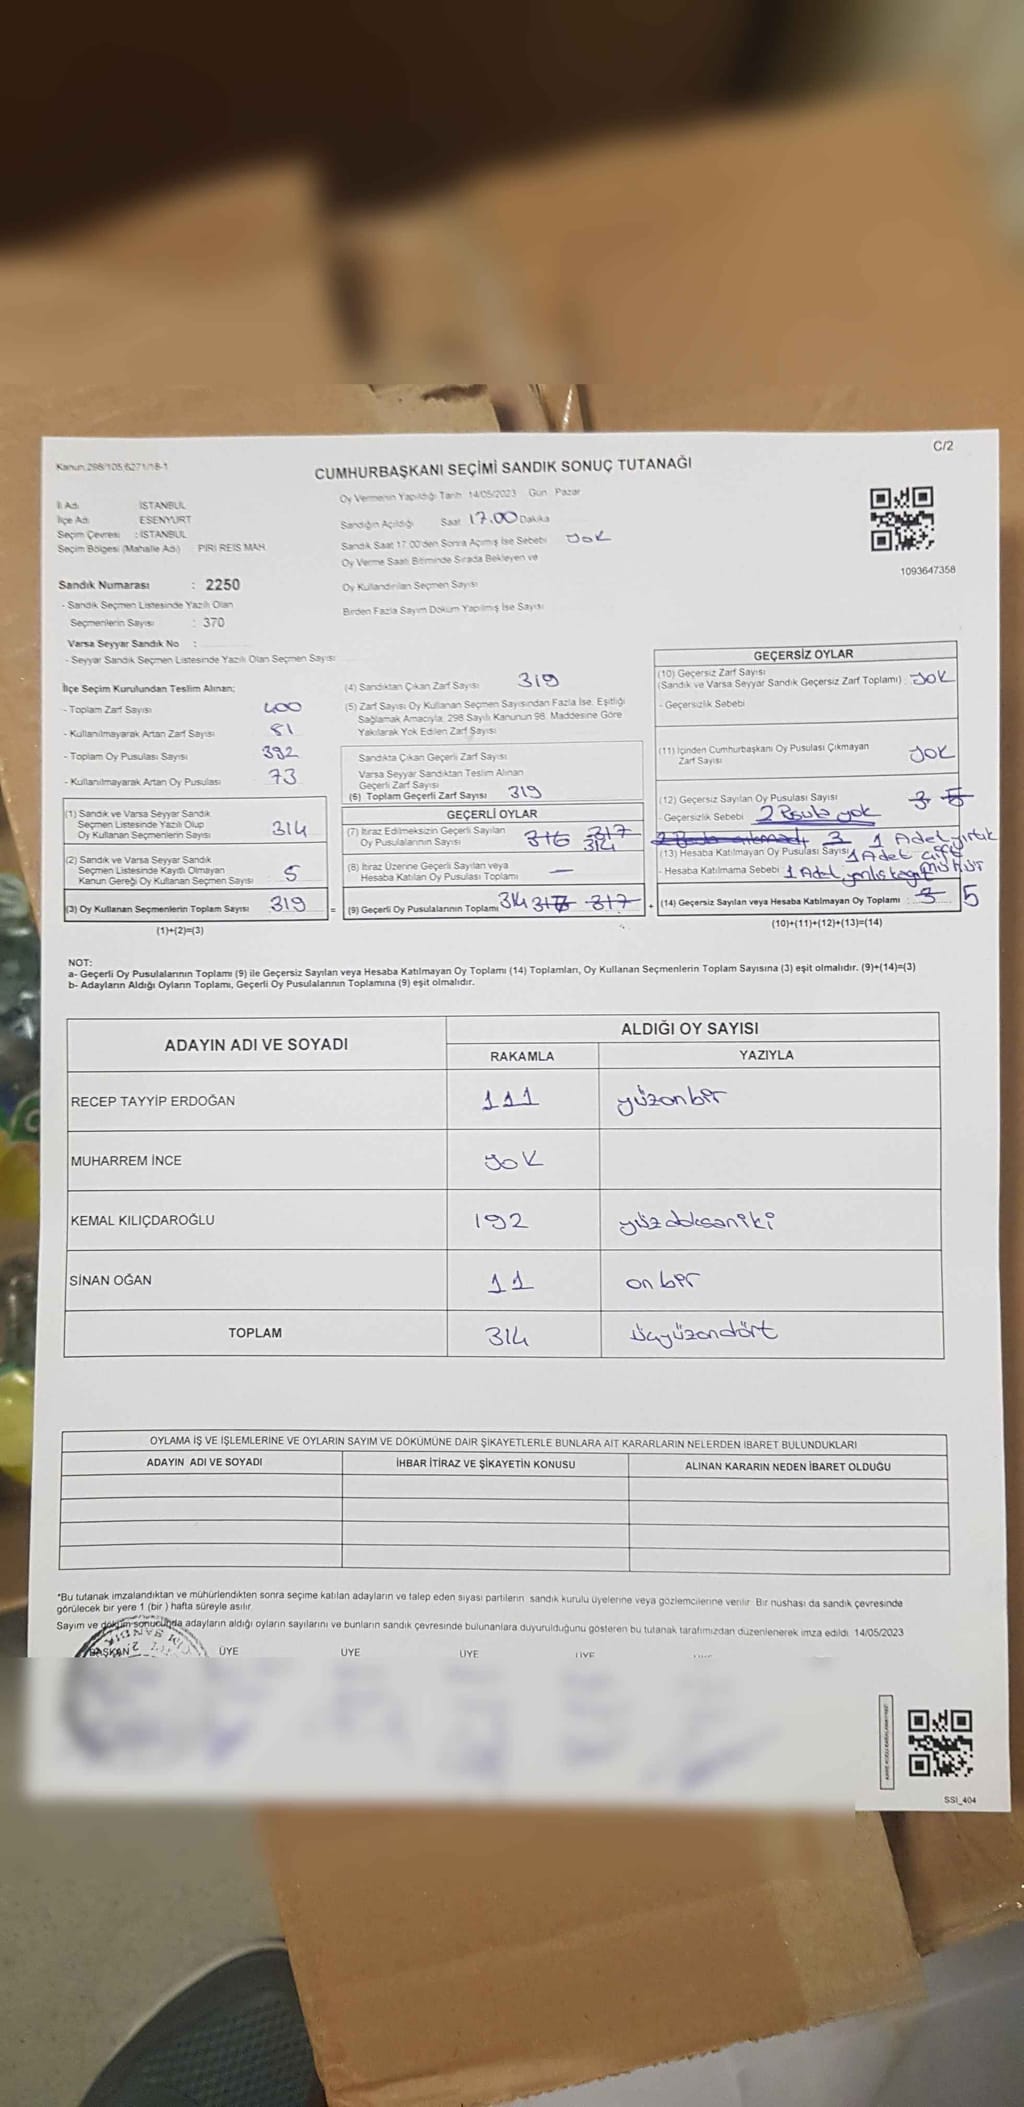 C/2
Kanun:298/105,6271/18-1
CUMHURBAŞKANI SEÇİMİ SANDIK SONUÇ TUTANAĞI
İl Adı : İSTANBUL
İlçe Adı : ESENYURT
Seçim Çevresi : İSTANBUL
Seçim Bölgesi (Mahalle Adı) PİRİ REİS MAH.
Oy Vermenin Yapıldığı Tarih 14/05/2023 Gün Pazar
Sandığın Açıldığı Saat 17.00 Dakika
Sandık Saat 17.00'den Sonra Açılmış İse Sebebi yok
Oy Verme Saati Bitiminde Sırada Bekleyen ve
Oy Kullandırılan Seçmen Sayısı
Birden Fazla Sayım Döküm Yapılmış İse Sayısı
1093647358
Sandık Numarası : 2250
- Sandık Seçmen Listesinde Yazılı Olan
Seçmenlerin Sayısı : 370
Varsa Seyyar Sandık No :
- Seyyar Sandık Seçmen Listesinde Yazılı Olan Seçmen Sayısı
İlçe Seçim Kurulundan Teslim Alınan;
- Toplam Zarf Sayısı 400
- Kullanılmayarak Artan Zarf Sayısı 81
- Toplam Oy Pusulası Sayısı 392
- Kullanılmayarak Artan Oy Pusulası 73
(1) Sandık ve Varsa Seyyar Sandık
Seçmen Listesinde Yazılı Olup
Oy Kullanan Seçmenlerin Sayısı 314
(2) Sandık ve Varsa Seyyar Sandık
Seçmen Listesinde Kayıtlı Olmayan
Kanun Gereği Oy Kullanan Seçmen Sayısı 5
(3) Oy Kullanan Seçmenlerin Toplam Sayısı 319 =
(1)+(2)=(3)
(4) Sandıktan Çıkan Zarf Sayısı 319
(5) Zarf Sayısı Oy Kullanan Seçmen Sayısından Fazla İse, Eşitliği
Sağlamak Amacıyla, 298 Sayılı Kanunun 98. Maddesine Göre
Yakılarak Yok Edilen Zarf Sayısı
Sandıkta Çıkan Geçerli Zarf Sayısı
Varsa Seyyar Sandıktan Teslim Alınan
Geçerli Zarf Sayısı
(6) Toplam Geçerli Zarf Sayısı 319
GEÇERLİ OYLAR
(7) İtiraz Edilmeksizin Geçerli Sayılan
Oy Pusulalarının Sayısı 316 317 314
(8) İtiraz Üzerine Geçerli Sayılan veya
Hesaba Katılan Oy Pusulası Toplamı —
(9) Geçerli Oy Pusulalarının Toplamı 314 317 317 +
GEÇERSİZ OYLAR
(10) Geçersiz Zarf Sayısı
(Sandık ve Varsa Seyyar Sandık Geçersiz Zarf Toplamı) : yok
- Geçersizlik Sebebi
(11) İçinden Cumhurbaşkanı Oy Pusulası Çıkmayan
Zarf Sayısı yok
(12) Geçersiz Sayılan Oy Pusulası Sayısı 3 5
- Geçersizlik Sebebi 2 Psula yok
3 1 Adet yırtık
(13) Hesaba Katılmayan Oy Pusulası Sayısı 1 Adet çift
- Hesaba Katılmama Sebebi 1 Adet yanlış kağıt mühür
(14) Geçersiz Sayılan veya Hesaba Katılmayan Oy Toplamı : 3 5
(10)+(11)+(12)+(13)=(14)
NOT:
a- Geçerli Oy Pusulalarının Toplamı (9) ile Geçersiz Sayılan veya Hesaba Katılmayan Oy Toplamı (14) Toplamları, Oy Kullanan Seçmenlerin Toplam Sayısına (3) eşit olmalıdır. (9)+(14)=(3)
b- Adayların Aldığı Oyların Toplamı, Geçerli Oy Pusulalarının Toplamına (9) eşit olmalıdır.
ADAYIN ADI VE SOYADI
ALDIĞI OY SAYISI
RAKAMLA YAZIYLA
RECEP TAYYİP ERDOĞAN 111 yüzonbir
MUHARREM İNCE yok
KEMAL KILIÇDAROĞLU 192 yüzdoksaniki
SİNAN OĞAN 11 onbir
TOPLAM 314 üçyüzondört
OYLAMA İŞ VE İŞLEMLERİNE VE OYLARIN SAYIM VE DÖKÜMÜNE DAİR ŞİKAYETLERLE BUNLARA AİT KARARLARIN NELERDEN İBARET BULUNDUKLARI
ADAYIN ADI VE SOYADI İHBAR İTİRAZ VE ŞİKAYETİN KONUSU ALINAN KARARIN NEDEN İBARET OLDUĞU
*Bu tutanak imzalandıktan ve mühürlendikten sonra seçime katılan adayların ve talep eden siyasi partilerin sandık kurulu üyelerine veya gözlemcilerine verilir. Bir nüshası da sandık çevresinde
görülecek bir yere 1 (bir ) hafta süreyle asılır.
Sayım ve döküm sonucunda adayların aldığı oyların sayılarını ve bunların sandık çevresinde bulunanlara duyurulduğunu gösteren bu tutanak tarafımızdan düzenlenerek imza edildi. 14/05/2023
BAŞKAN ÜYE ÜYE ÜYE ÜYE
SSI_404